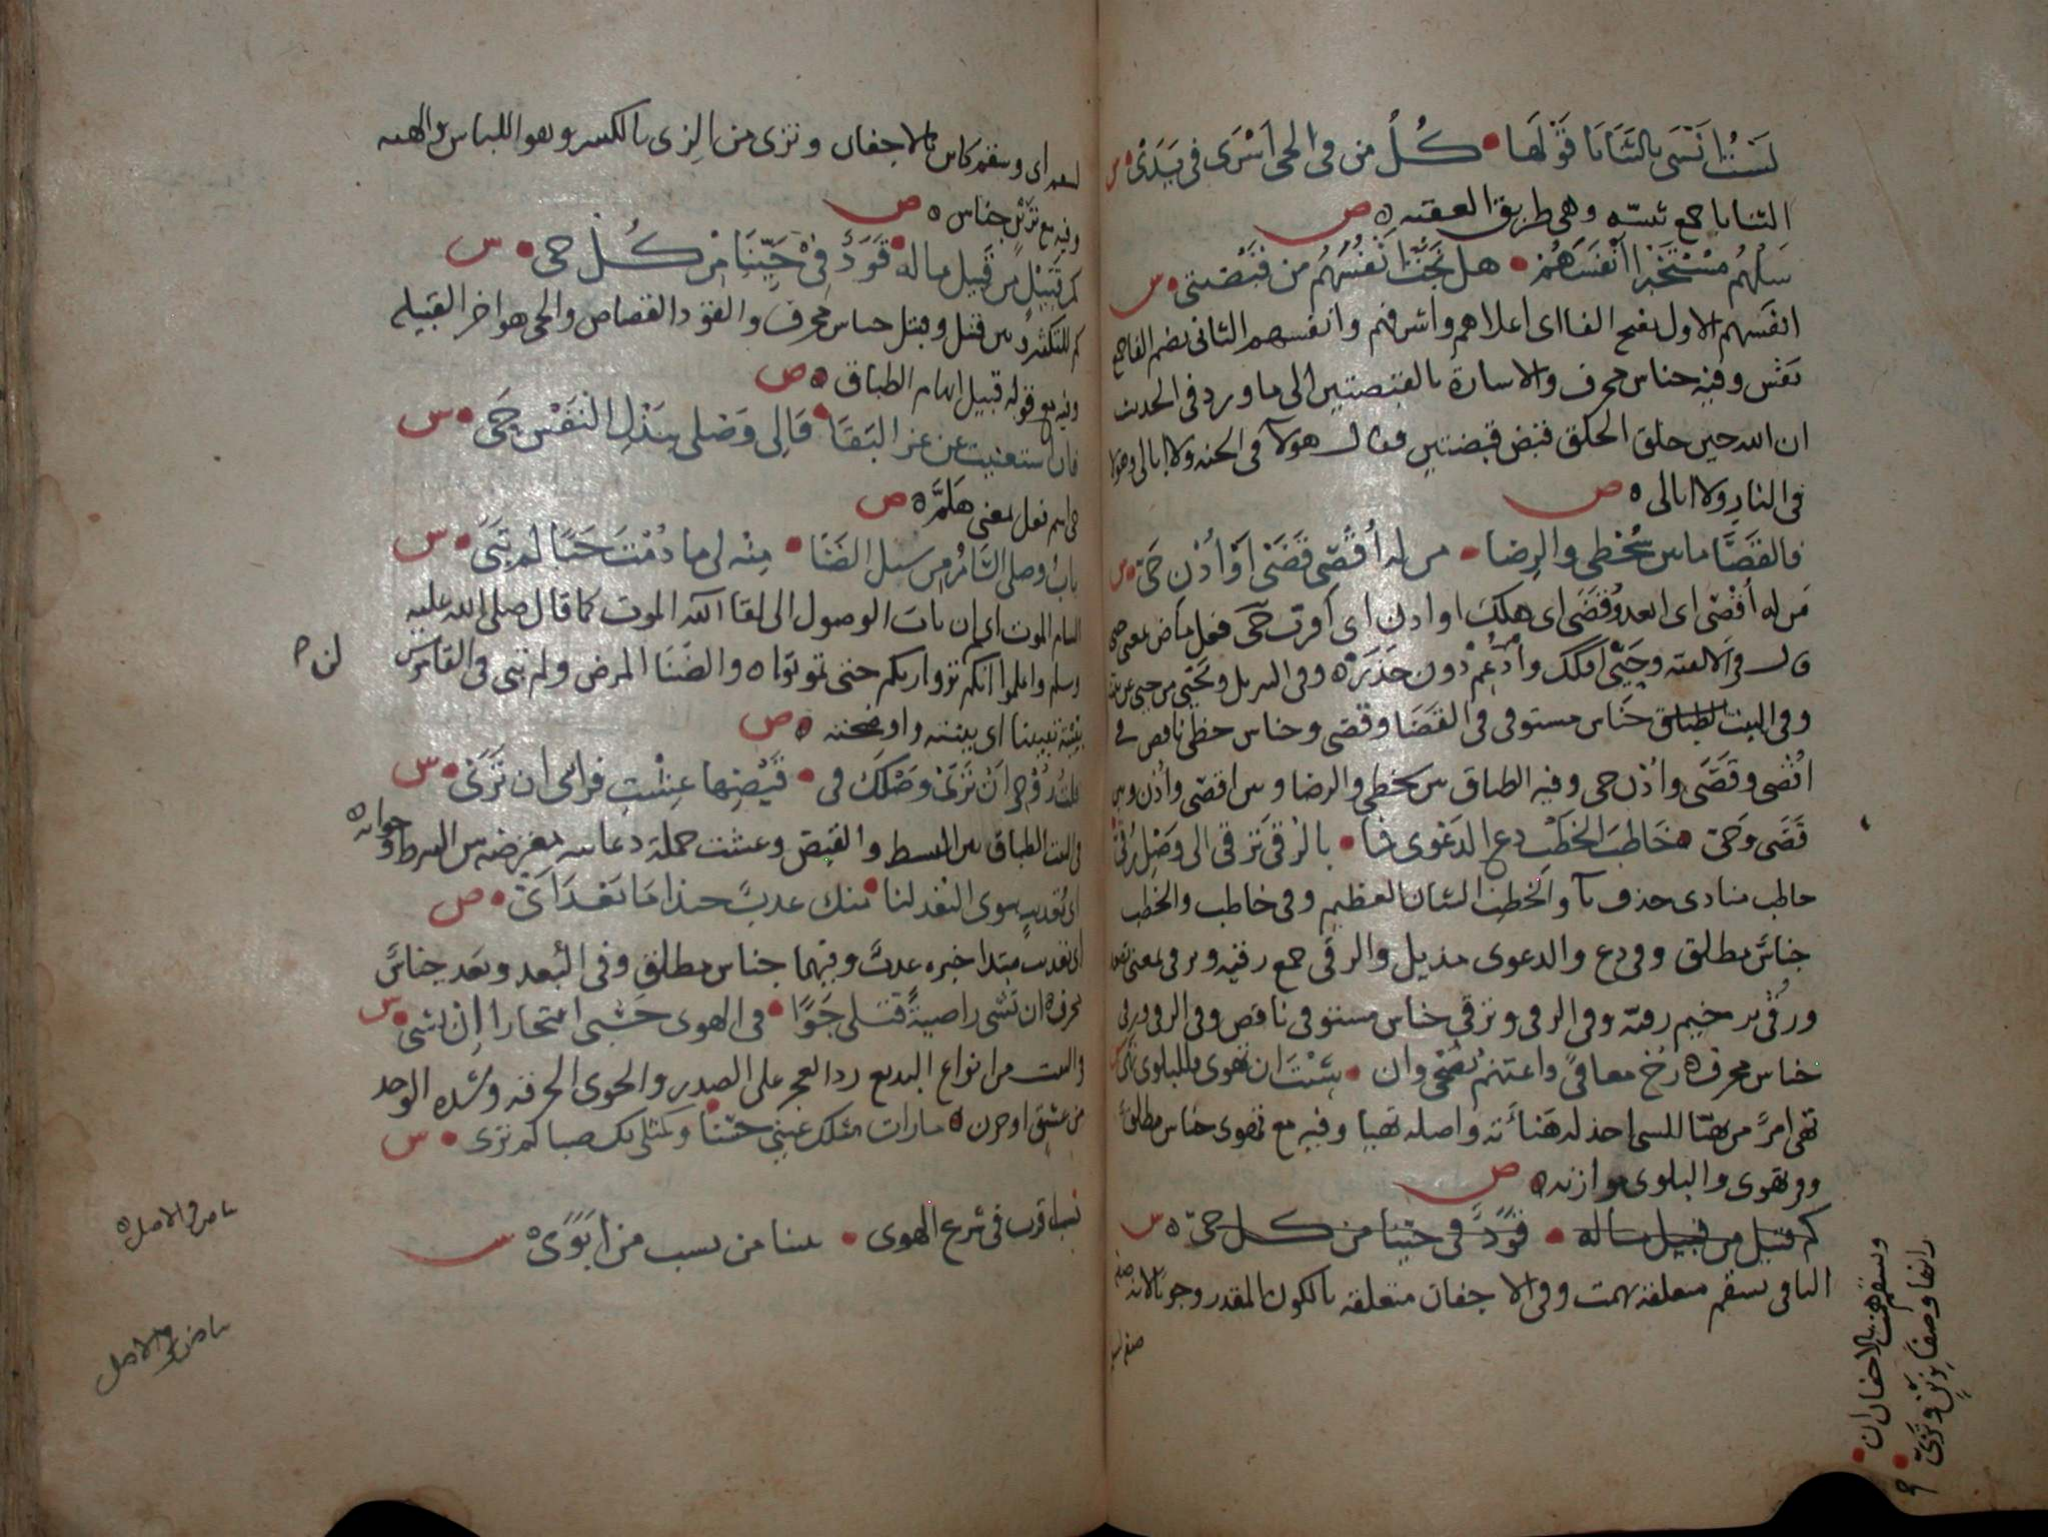 لست أنسى بالثنايا قولها • كل من في الحي أسرى في يدي • س
الثنايا جمع ثنيه وهي طريق العقبه ه ص
سلهم مستخبرا أنفسهم • هل نجت أنفسهم من قبضتي • س
انفسهم الاول بفتح الفا اى اعلاهم واشرفهم وانفسهم الثانى بضم الفا جمع
نفس وفيه جناس محرف والاشارة بالقبضتين الى ما ورد فى الحديث
ان الله حين خلق الخلق قبض قبضتين فقال هولآ فى الجنه ولا ابالى وهولا
فى النار ولا ابالى ه ص
فالقضا ما بين سخطي والرضا • من له أقص قضى أو أدن حي • س
من له أقص اى ابعد وقضى اى هلك او ادن اى اقرب حي فعل ماض بمعنى
وفى البيت جناس مستوفى فى القضا وقضى وجناس خطى ناقص فى
اقصى وقضى وادن حى وفيه الطباق بين سخطى والرضا وبين اقصى وادن وبين
قضى وحي ه خاطب الخطب دع الدعوى فما • بالرقى ترقى الى وصل رقي
خاطب منادى حذف يآ والخطب الشان العظيم وفى خاطب والخطب
جناس مطلق وفى دع والدعوى مذيل والرقى جمع رقيه وترقى بمعنى
ورقي ترخيم رقيه وفى الرقى وترقى جناس مستوفى ناقص وفى الرقى ورقى
جناس محرف ه رح معافى واغتنم نصحى وان • شئت ان تهوى فللبلوى تهي
تهى امر من تهيا للشى اخذ له هيأته واصله تهيا وفيه مع تهوى جناس مطلق
وفى تهوى والبلوى موازنه ه ص
كم قتيل من قبيل ما له • قود فى حبنا من كل حي ه س
البا فى بسقم متعلقه بهمت وفى الاجفان متعلقه بالكون المقدر وجوبا لانه
وبسقم همت بالاجفان ان •
زانها وصفا بزين وبزي •
لسقم اى وسقم كاين بالاجفان وبزى من الزى بالكسر وهو اللباس والهيه
وفيه مع بزين جناس ه ص
كم قتيل من قبيل ما له • قود فى حبنا من كل حي • س
كم للتكثير وبين قتل وقبل جناس محرف والقود القصاص والحى هو اخر القبيله
وفيه مع قوله قبيل ايهام الطباق ه ص
فان استغنيت عن عز البقا • فالى وصلى ببذل النفس حي • س
حى اسم فعل بمعنى هلم ه ص
باب وصلى السام من سبل الضنا • منه لى ما دمت حيا لم تبي • س
السام الموت اى ان باب الوصول الى لقا الله الموت كما قال صلى الله عليه
وسلم واعلموا انكم لن تروا ربكم حتى تموتوا ه والضنا المرض ولم تبى فى القاموس
بيته تبيينا اى بينته واوضحته ه ص
قلت روحى ان ترى بسطك فى • قبضها عشت فرائى ان ترى • س
فى البيت الطباق بين البسط والقبض وعشت جملة دعائيه معترضه بين الشرط وجوابه ه
اى تعذيب سوى البعد لنا • منك عذب حبذا ما بعد اي • ص
اى تعذيب مبتدا خبره عذب وفيهما جناس مطلق وفى البعد وبعد جناس
محرف ه ان تشى راضية قتلى جوا • فى الهوى حسبى افتخارا ان تشي • س
فى البيت من انواع البديع رد العجز على الصدر والجوى الحرقه وشدة الوجد
من عشق او حزن ه ما رات مثلك عينى حسنا • وكمثلى بك صبا لم ترى • س
نسب اقرب فى شرع الهوى • بيننا من نسب من ابوي ه س
بياض فى الاصل ه
بياض فى الاصل